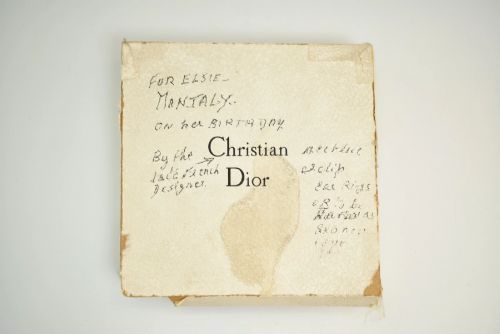 FOR ELSIE -
MONTALY.
ON her BIRTHDAY
By the
late French
Designer.
Christian
Dior
Necklace
& clip
ear Rings